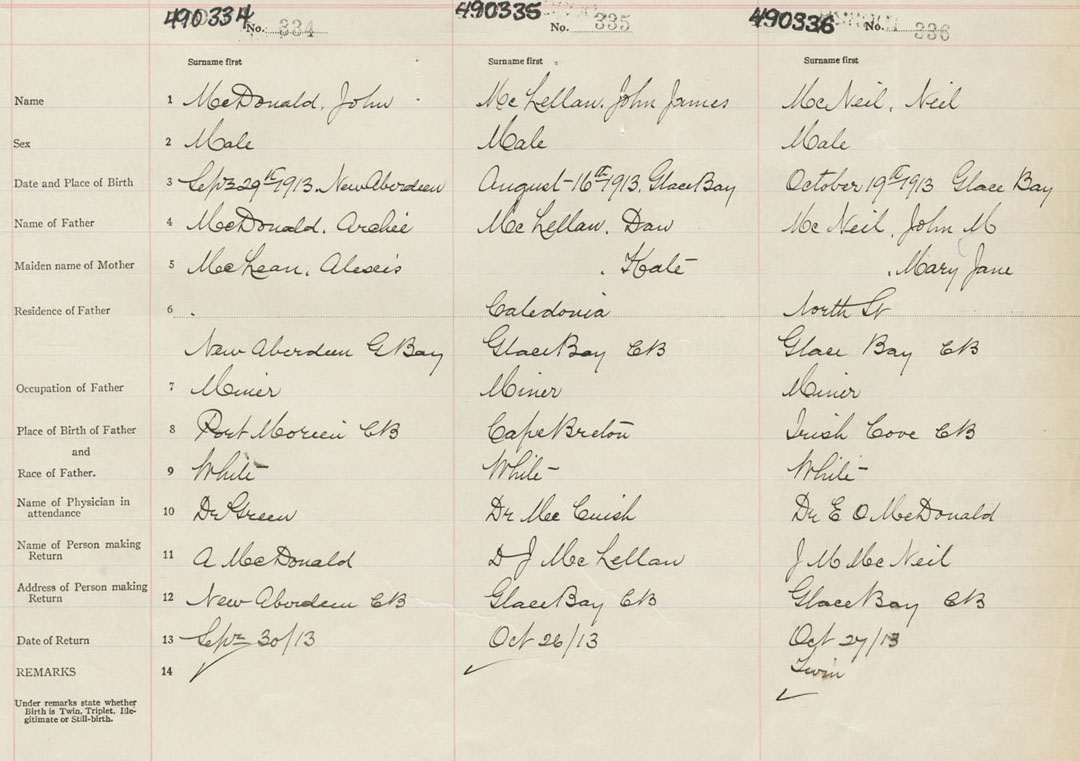 490334 No. 334 490335 No. 335 490336 No. 336
Surname first Surname first Surname first
Name 1 McDonald, John McLellan, John James McNeil, Neil
Sex 2 Male Male Male
Date and Place of Birth 3 Sept 29th 1913. New Aberdeen August 16th 1913, Glace Bay October 19th 1913 Glace Bay
Name of Father 4 McDonald, Archie McLellan, Dan McNeil, John M
Maiden name of Mother 5 McLean, Alexis . Kate . Mary Jane
Residence of Father 6 . Caledonia North St
New Aberdeen G Bay Glace Bay CB Glace Bay CB
Occupation of Father 7 Miner Miner Miner
Place of Birth of Father 8 Port Morien CB Cape Breton Irish Cove CB
and
Race of Father. 9 White White White
Name of Physician in attendance 10 Dr Green Dr Mc Cuish Dr E O McDonald
Name of Person making Return 11 A McDonald D J McLellan J M McNeil
Address of Person making Return 12 New Aberdeen CB Glace Bay CB Glace Bay CB
Date of Return 13 Sept 30/13 Oct 26/13 Oct 27/13
REMARKS 14 Twin
Under remarks state whether
Birth is Twin, Triplet, Ille-
gitimate or Still-birth.